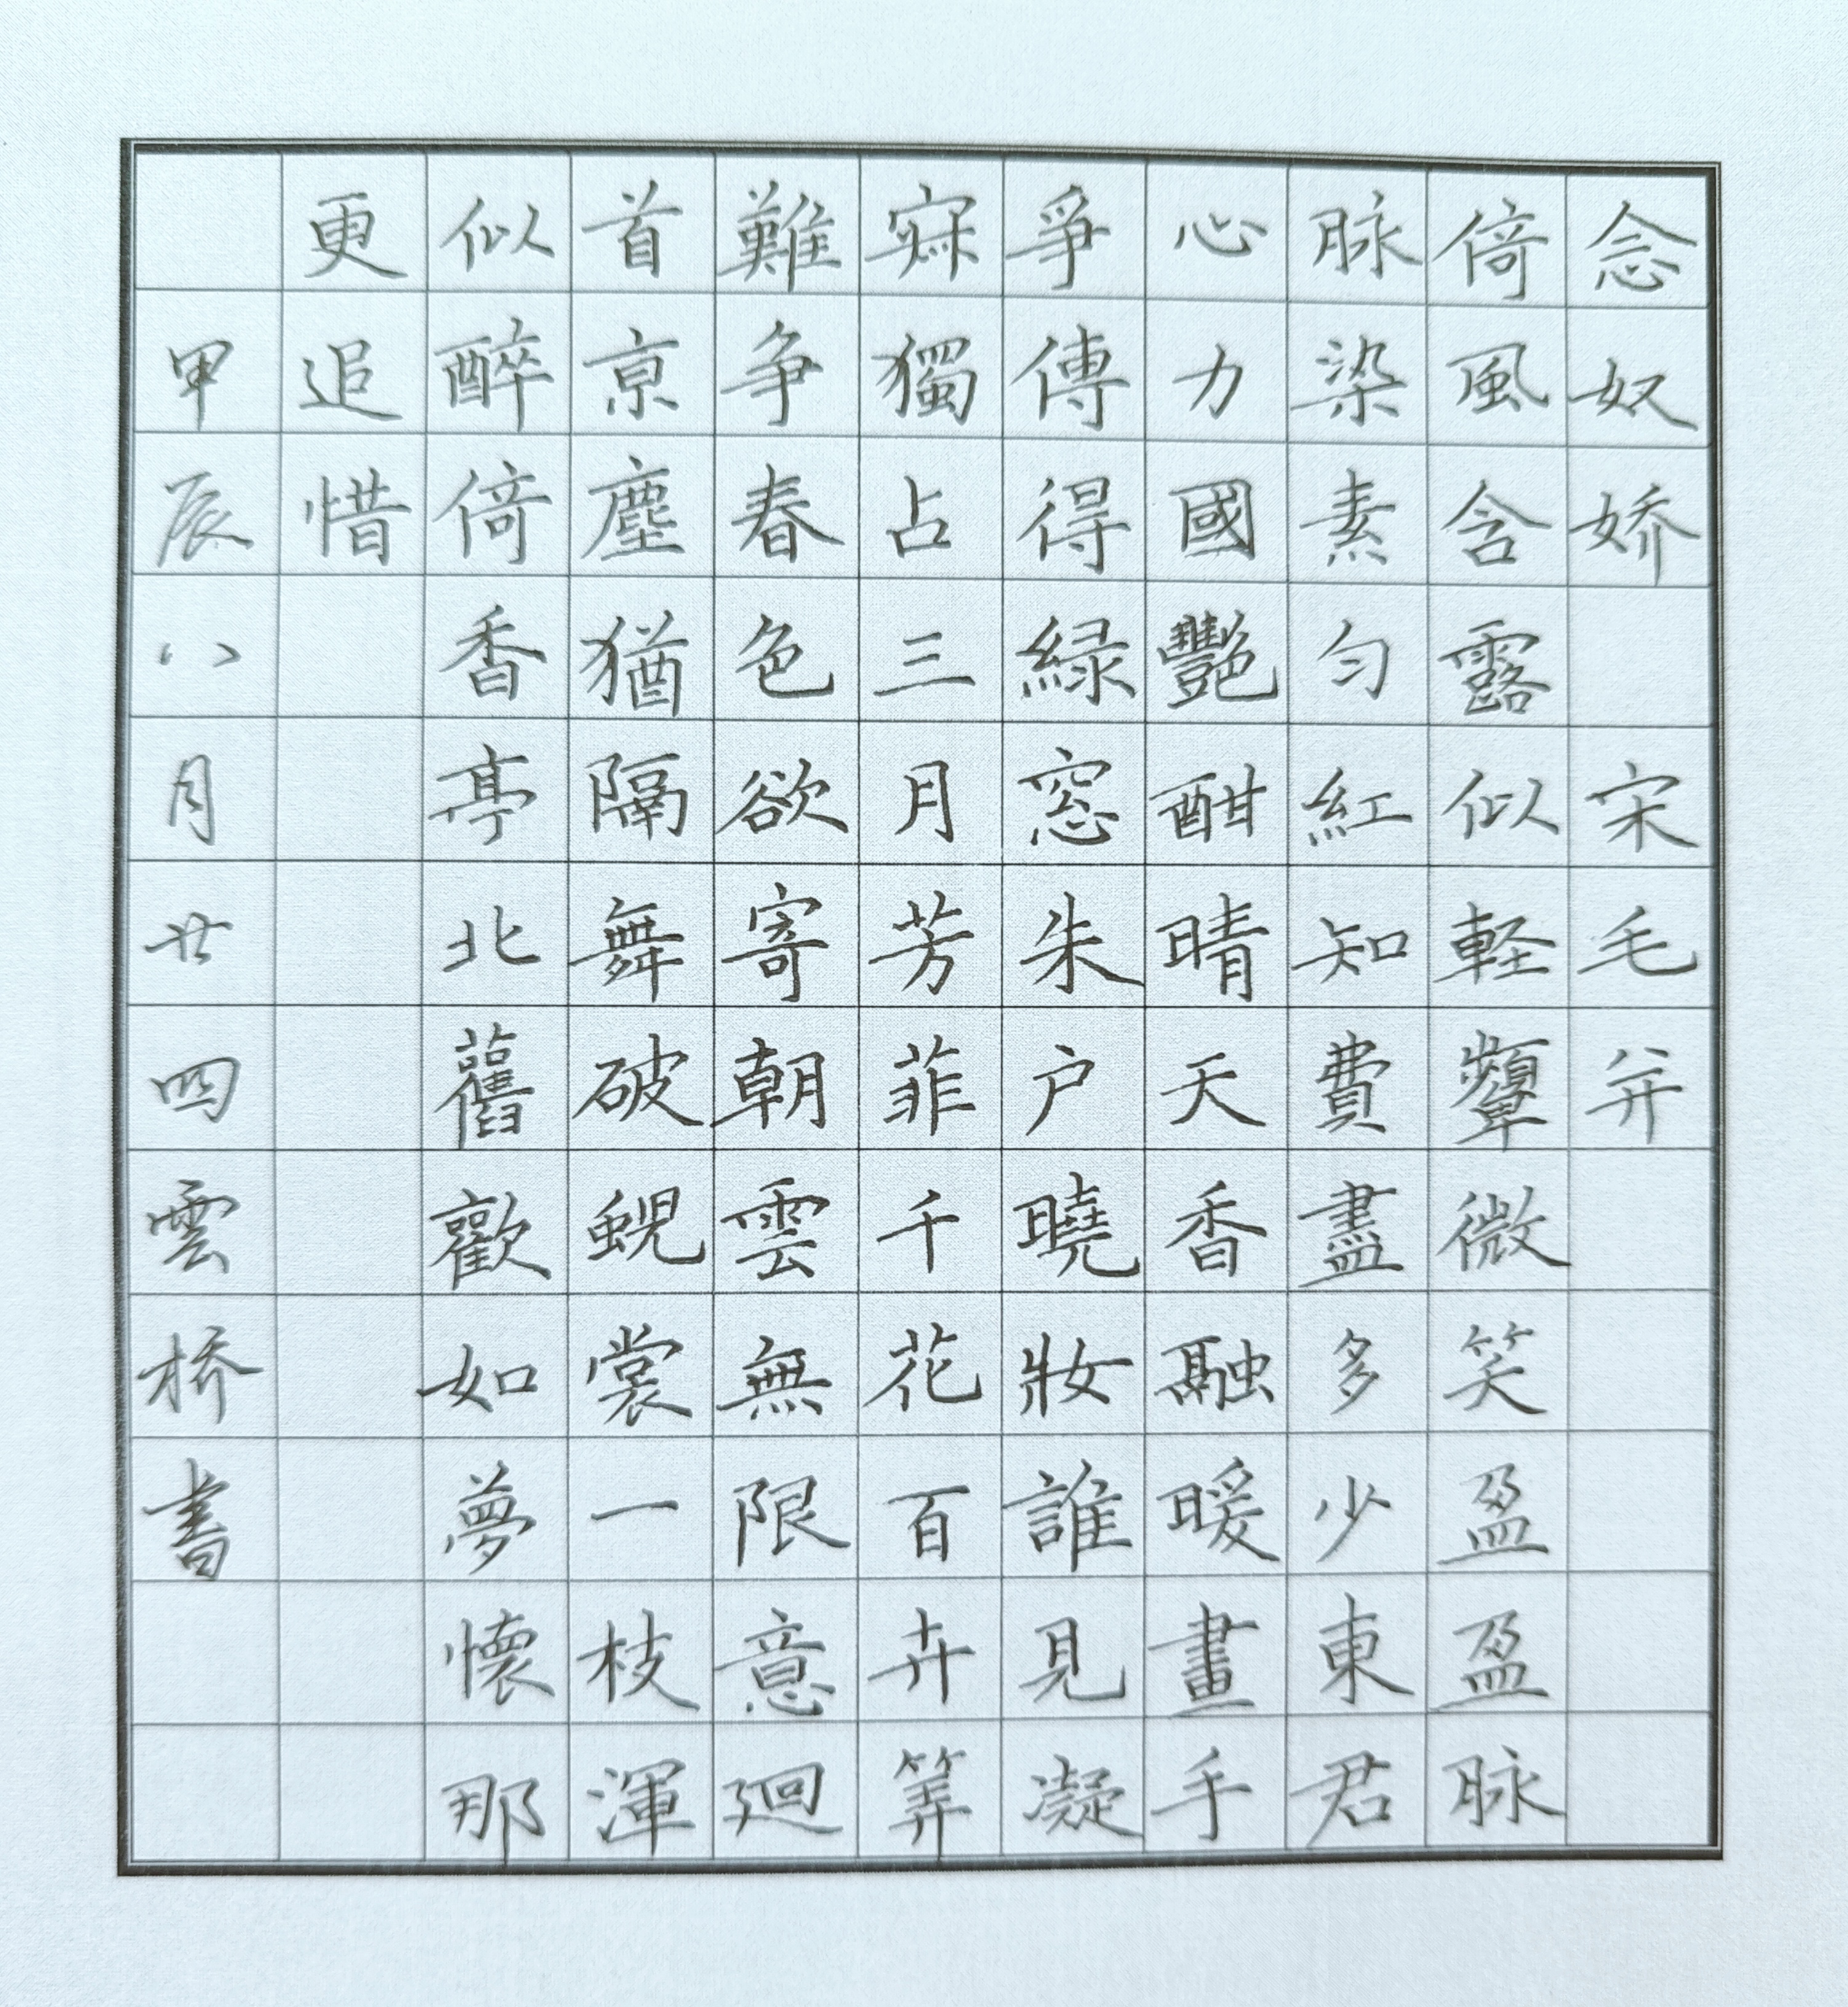 念奴娇 宋 毛幵
倚風含露似軽顰微笑盈盈脉
脉染素匀紅知費盡多少東君
心力國艷酣晴天香融暖畫手
爭傳得緑窓朱户曉妝誰見凝
寂獨占三月芳菲千花百卉筭
難争春色欲寄朝雲無限意廻
首京塵猶隔舞破蜺裳一枝渾
似醉倚香亭北舊歡如夢懷那
更追惜
甲辰八月廿四雲桥書